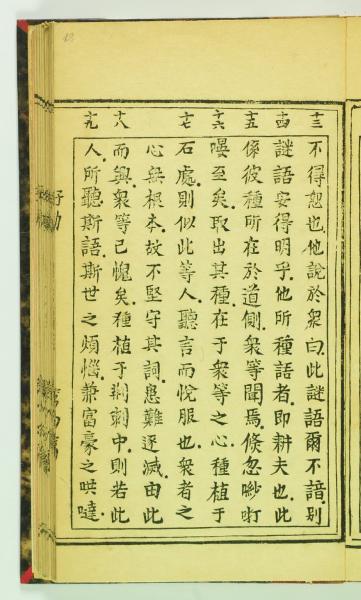 十三 不得恕也他說於衆曰此謎語爾不諳別
十四 謎語安得明乎他所種語者即耕夫也此
十五 係彼種所在於道側衆等聞焉倏忽吵吖
十六 嘜至矣取出其種在于衆等之心種植于
十七 石處則似此等人聽言而悅服也衆者之
心無根本故不堅守其詞患難逐滅由此
十八 而興衆等已愧矣種植于荊刺中則若此
十九 人所聽斯語斯世之煩惱兼富豪之哄噠